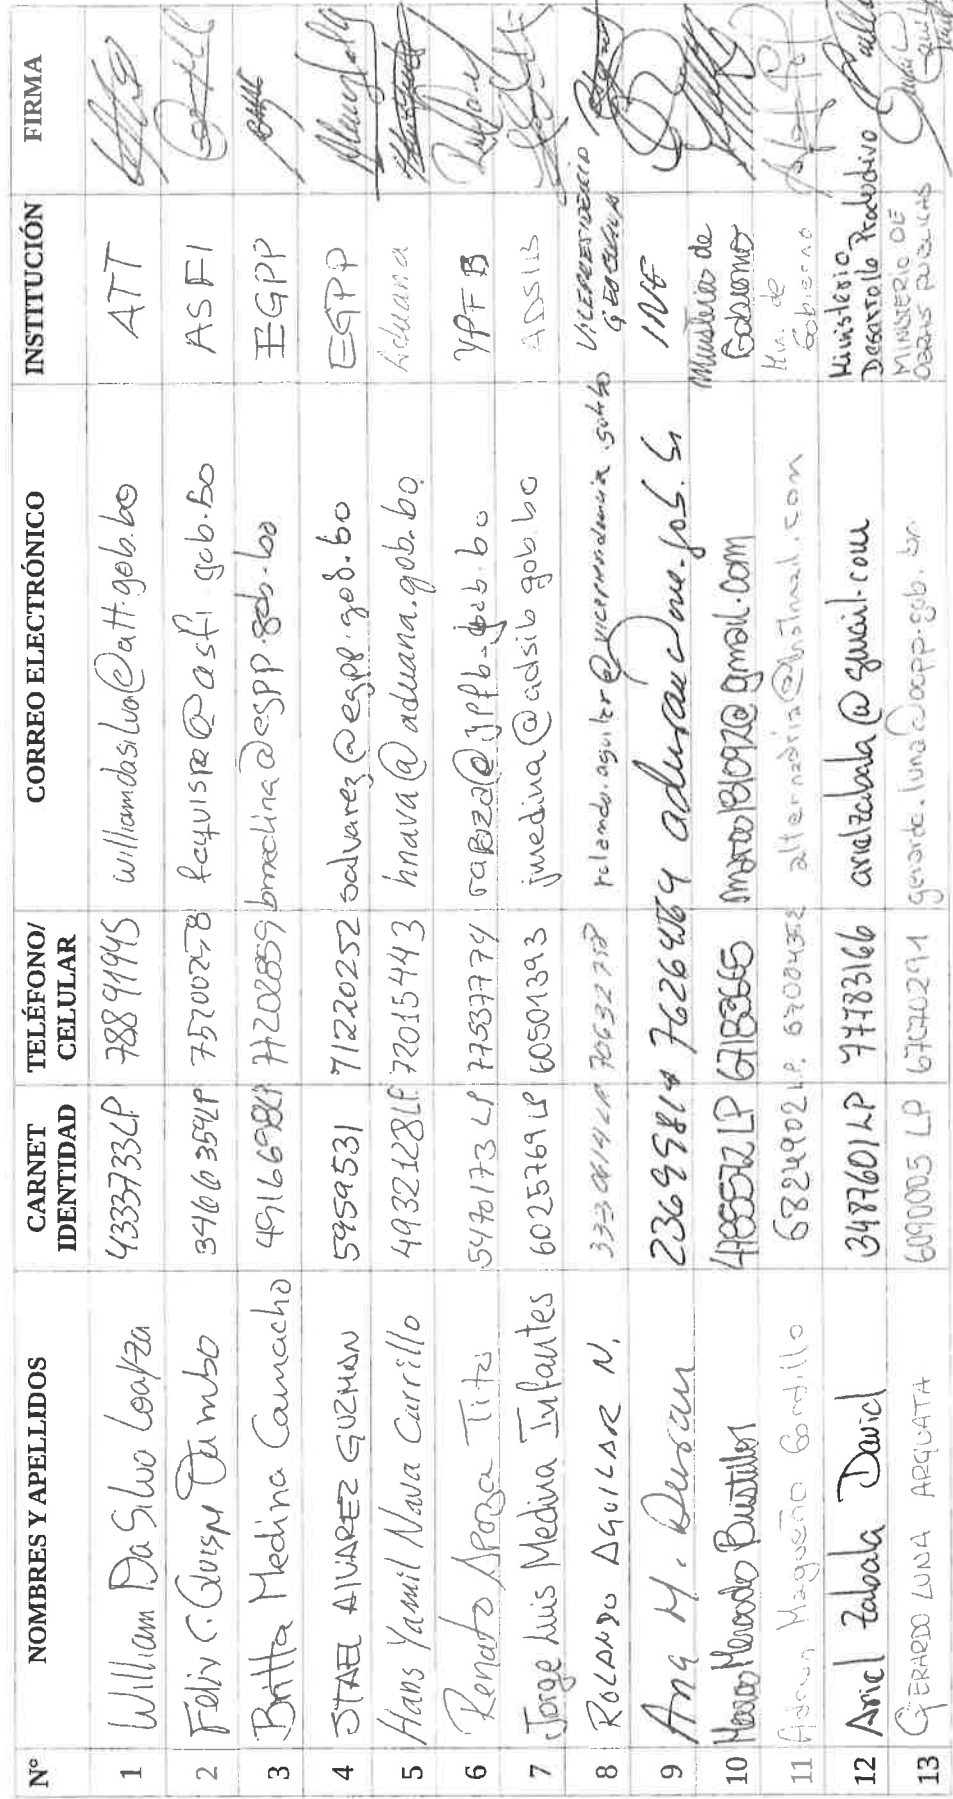 N° NOMBRES Y APELLIDOS CARNET IDENTIDAD TELÉFONO/ CELULAR CORREO ELECTRÓNICO INSTITUCIÓN FIRMA
1 William Da Silva Loayza 4333733LP 78891945 williamdasilva@att.gob.bo ATT
2 Felix C. Quispe Tambo 3466359LP 75200278 fcquispe@asfi.gob.bo ASFI
3 Britta Medina Camacho 4916698LP 77202859 bmedina@egpp.gob.bo EGPP
4 STAEL ALVAREZ GUZMAN 5959531 71220252 salvarez@egpp.gob.bo EGPP
5 Hans Yamil Nava Carrillo 4932128LP 72015443 hnava@aduana.gob.bo Aduana
6 Renato Apaza Tito 5470173 LP 77537774 rapaza@ypfb.gob.bo YPFB
7 Jorge Luis Medina Infantes 6025769 LP 60501393 jmedina@adsib.gob.bo ADSIB
8 ROLANDO AGUILAR N. LP 70632728 rolando.aguilar@vicepresidencia.gob.bo VICEPRESIDENCIA
9 Ana M. Duran 76264569 aduran@ine.gob.bo INE
10 Marco Mercado Bustillos 4785572 LP 67183665 marco131092@gmail.com Ministerio de Gobierno
11 Magueño Gordillo 6824902 LP. alternadria@hotmail.com Min. de Gobierno
12 Ariel Zabala David 3487601LP 77783166 arielzabala@gmail.com Ministerio Desarrollo Productivo
13 GERARDO LUNA ARGUATA 6090005 LP 67070291 gerardo.luna@oopp.gob.bo MINISTERIO DE OBRAS PUBLICAS